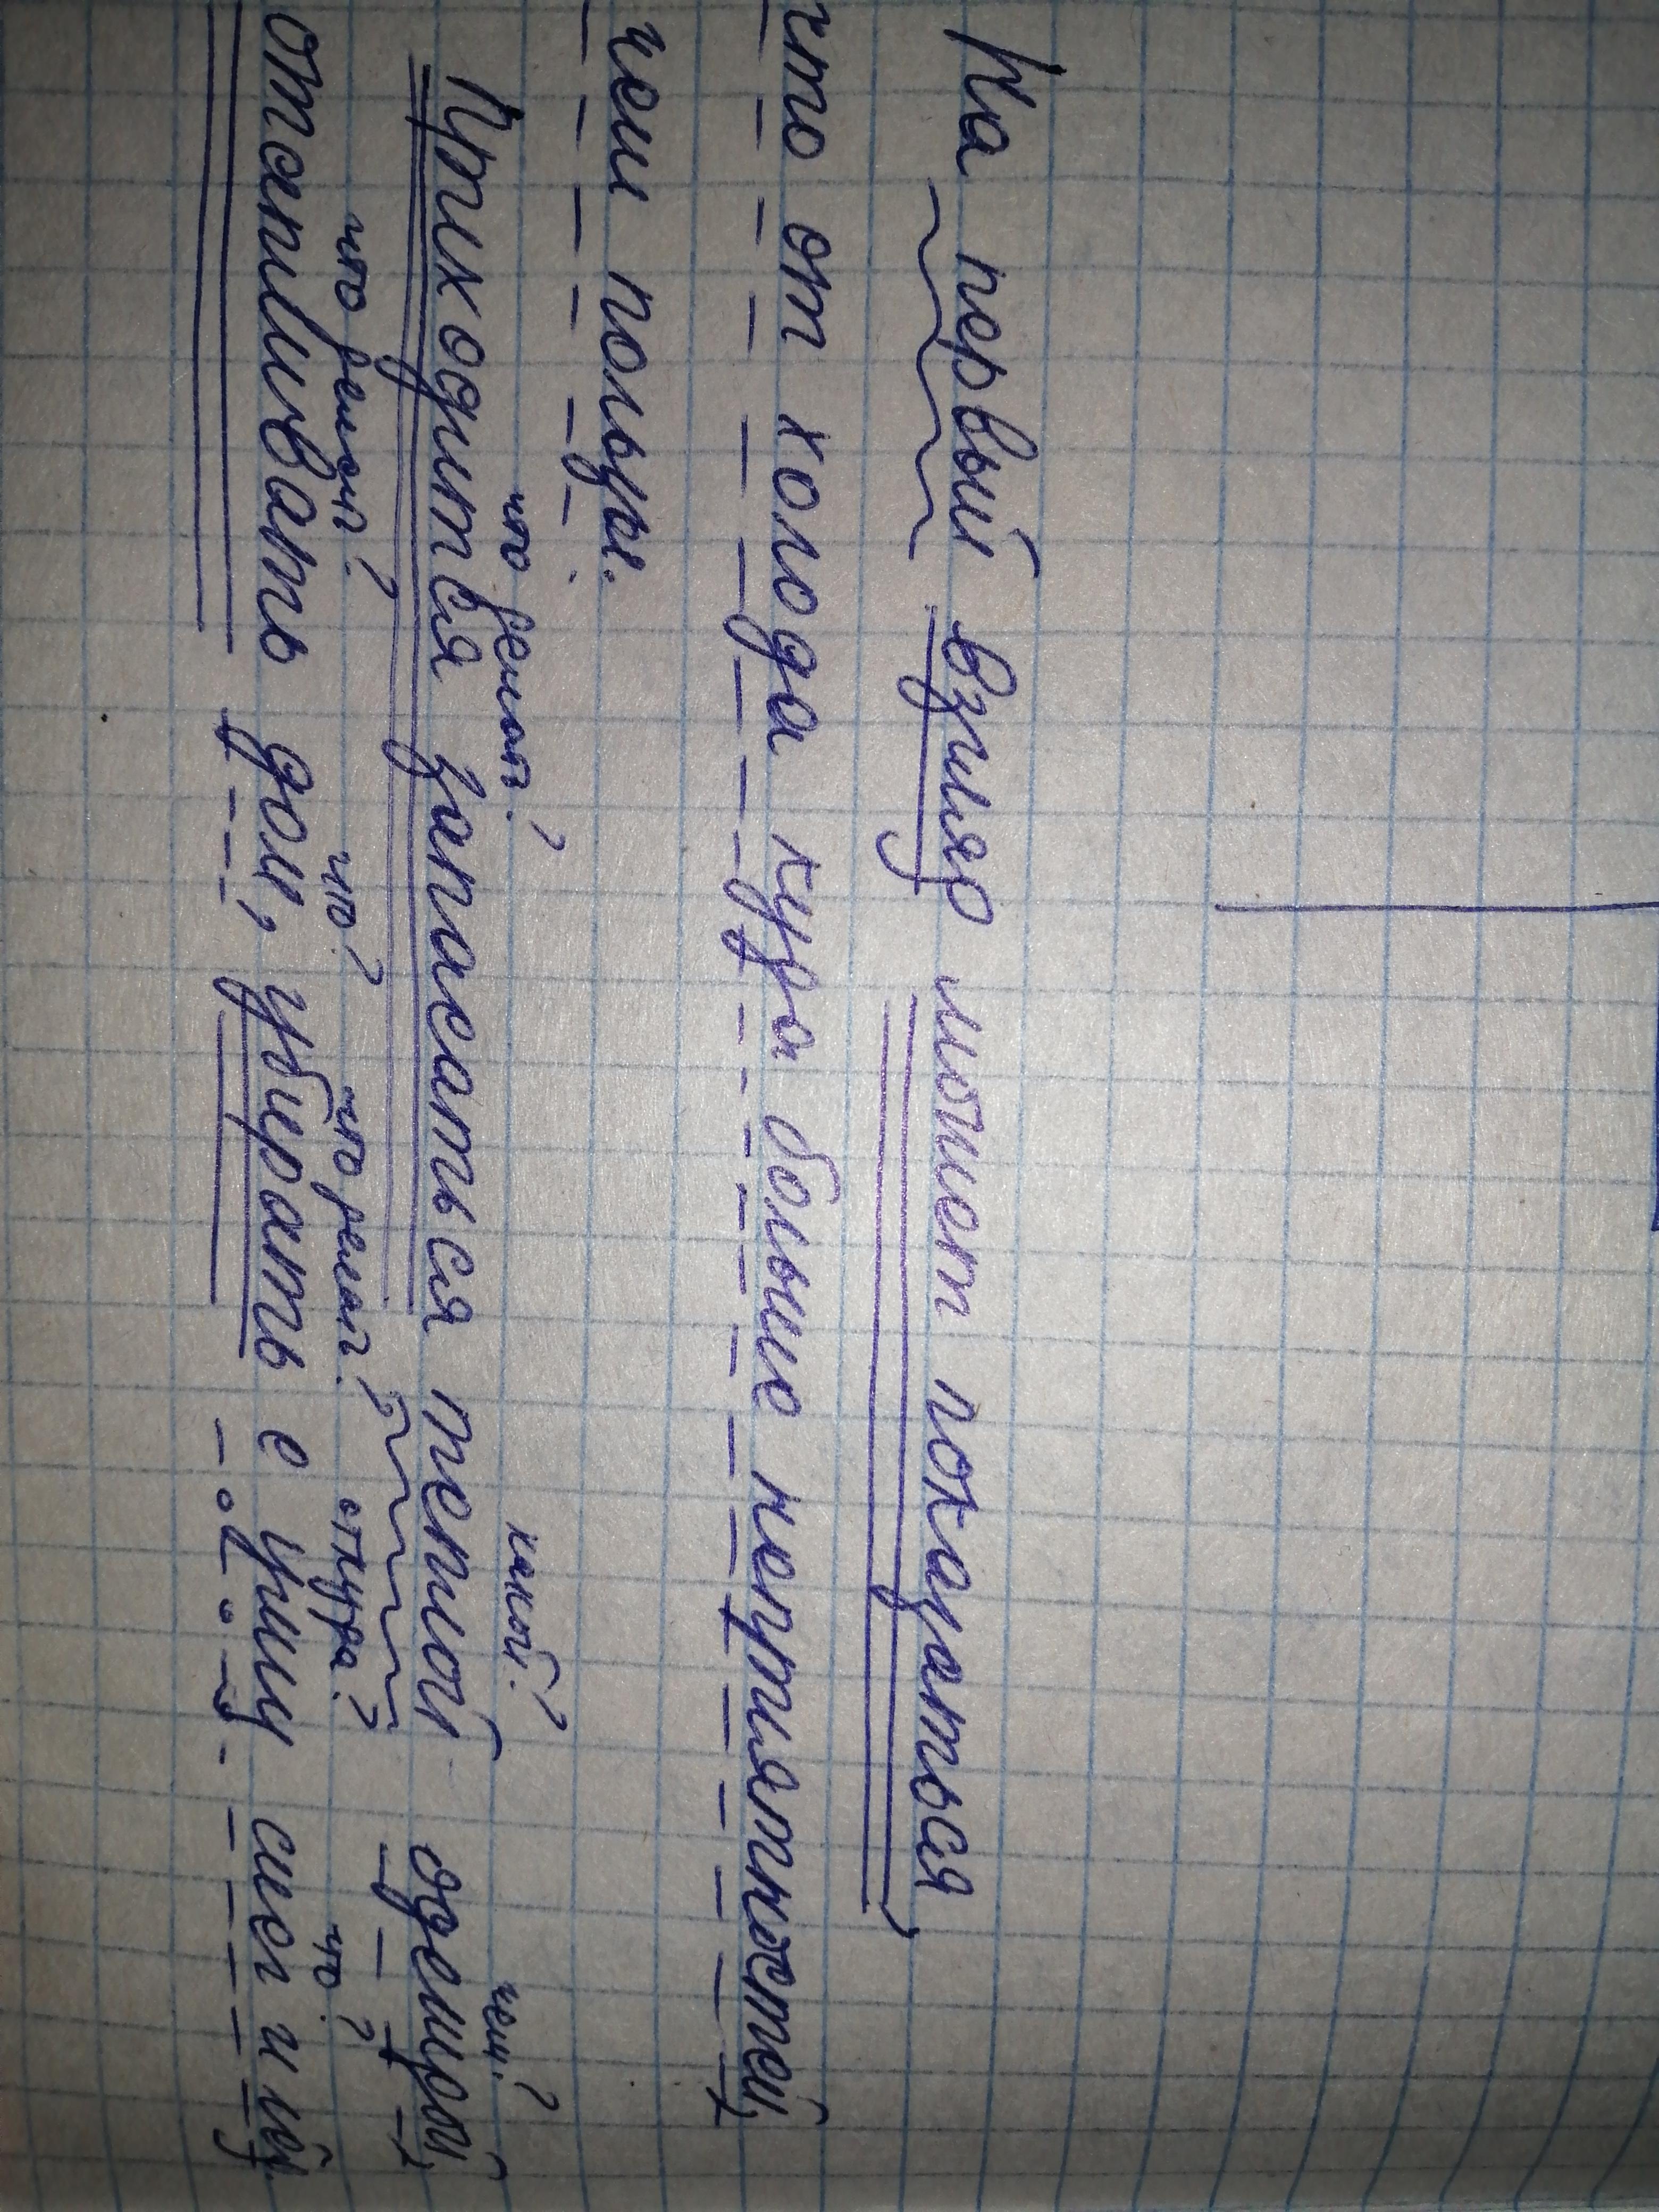 На первый взгляд может показаться
что от холода куда больше неприятностей,
чем пользы.
что делат? какой? чем?
Приходится запасаться теплой одеждой,
что делат? что? что делат? откуда? что?
отапливать дом, убирать с улиц снег и лёд.